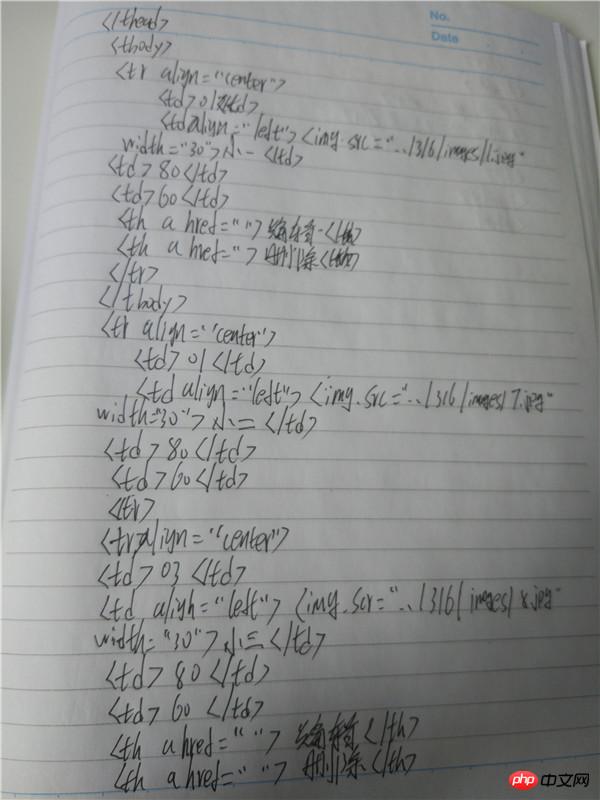 No.
Date
</thead>
<tbody>
<tr align="center">
<td>01</td>
<td align="left"><img.src="../316/images/1.jpg"
width="30">小一</td>
<td>80</td>
<td>60</td>
<th a href="">编辑</th>
<th a href="">删除</th>
</tr>
</tbody>
<tr align="center">
<td>01</td>
<td align="left"><img.src="../316/images/7.jpg"
width="30">小二</td>
<td>80</td>
<td>60</td>
<tr>
<tr>align="center">
<td>03</td>
<td align="left"><img.scr="../316/images/8.jpg"
width="30">小三</td>
<td>80</td>
<td>60</td>
<th a href="">编辑</th>
<th a href="">删除</th>
php 中文网